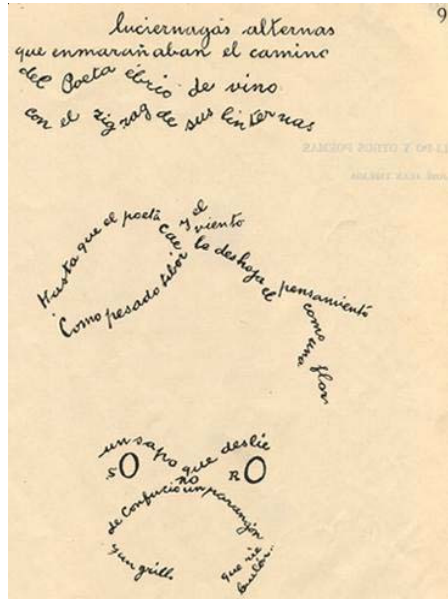 9
luciernagas alternas
que enmarañaban el camino
del Poeta ébrio de vino
con el zigzag de sus linternas
Hasta que el poeta cae
Como pesado tibor
y el
viento
le deshoja el pensamiento
como una flor
un sapo que deslie
SO no RO
de Confucio un parangón
y un grillo
que rie
burlón..